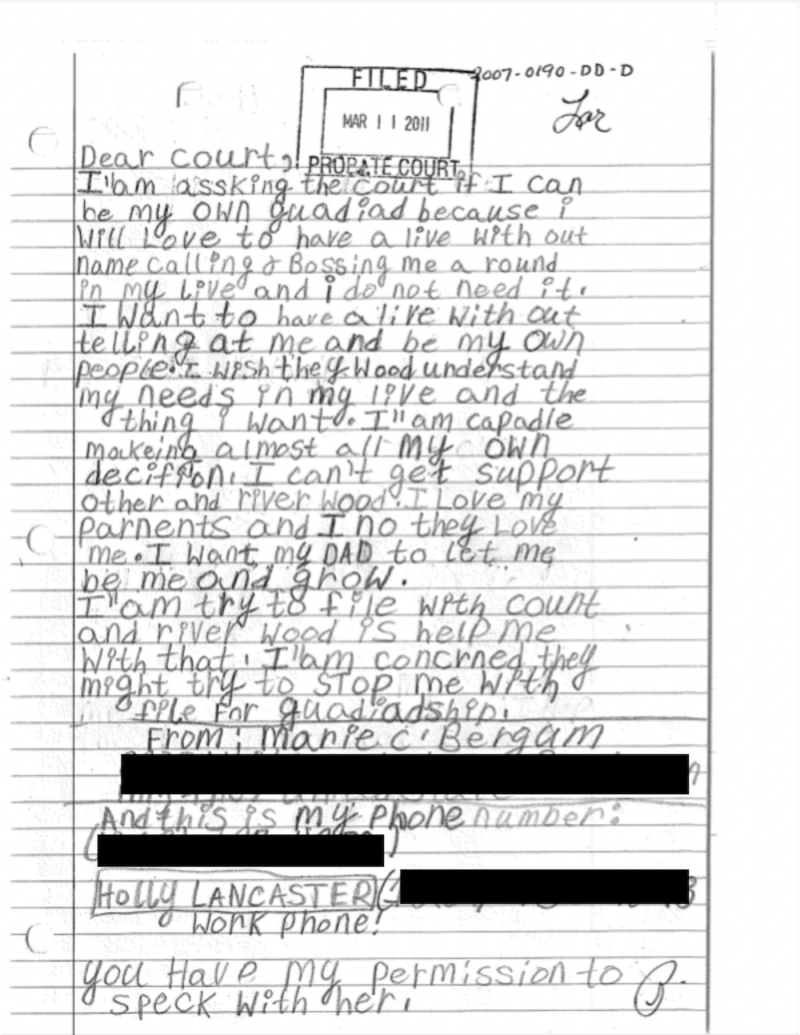 FILED
2007-0190-DD-D
MAR 11 2011
PROBATE COURT
Dear court,
I"am assking the court if I can
be my own guadiad because i
will Love to have a live with out
name calling & Bossing me a round
in my Live and i do not need it.
I want to have a live with out
telling at me and be my own
people. I wish they wood understand
my needs in my live and the
thing i want. I"am capadle
makeing almost all my own
decition. I can't get support
other and river wood. I Love my
Parnents and I no they Love
me. I want my DAD to let me
be me and grow.
I"am try to file with count
and river wood is help me
with that. I"am concrned they
might try to STOP me with
file for guadiadship.
From: Marie c. Bergam
And this is my Phone number:
Holly LANCASTER
work phone!
you Have my permission to
speck with her.